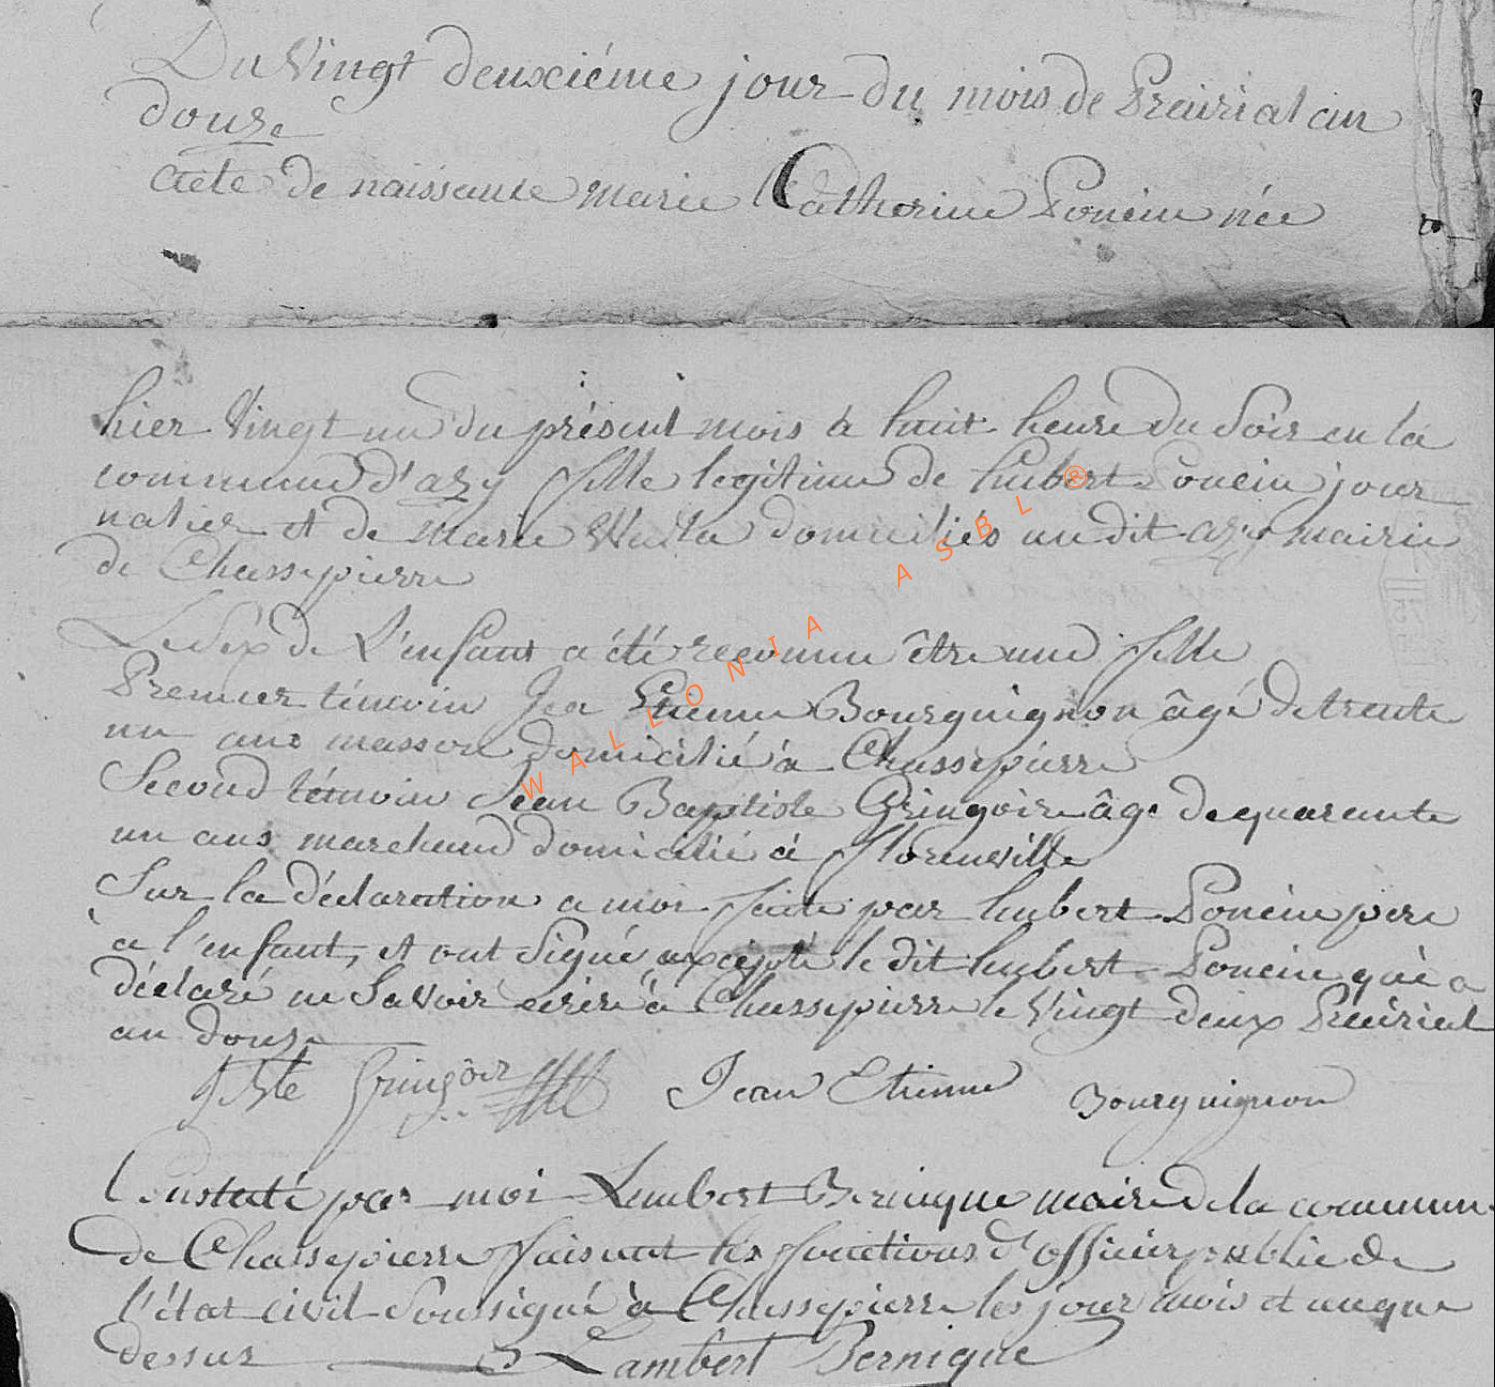 Du Vingt deuxciéme jour du mois de Prairial an
douze
acte de naissance marie Catherine Poncin née
hier Vingt un du présent mois à huit heure du Soir en la
commune d'azy fille legitime de hubert Poncin jour
nalier et de Marie domiciliés au dit azy mairie
de Chassepierre
Le Sex de L'enfant a été reconnu être une fille
Premier témoin Jea Etienne Bourguignon âgé de trente
un ans masson domicilié à Chassepierre
Second témoin Jean Baptiste Gringoire âgé de quarante
un ans marchand domicilié à florenville
Sur la déclaration a moi faite par hubert Poncin pere
a l'enfant, et ont Signé excepté le dit hubert Poncin qui a
déclaré ne Savoir ecrire à Chassepierre le Vingt deux Prairial
an douze
JBte Gringoir Jean Etienne Bourguignon
Constaté par moi Lambert Bernique maire de la commune
de Chassepierre faisant les fonctions d'officier public de
l'état civil Soussigné à Chassepierre les jour mois et an que
dessus Lambert Bernique
WALLONIA ASBL ®